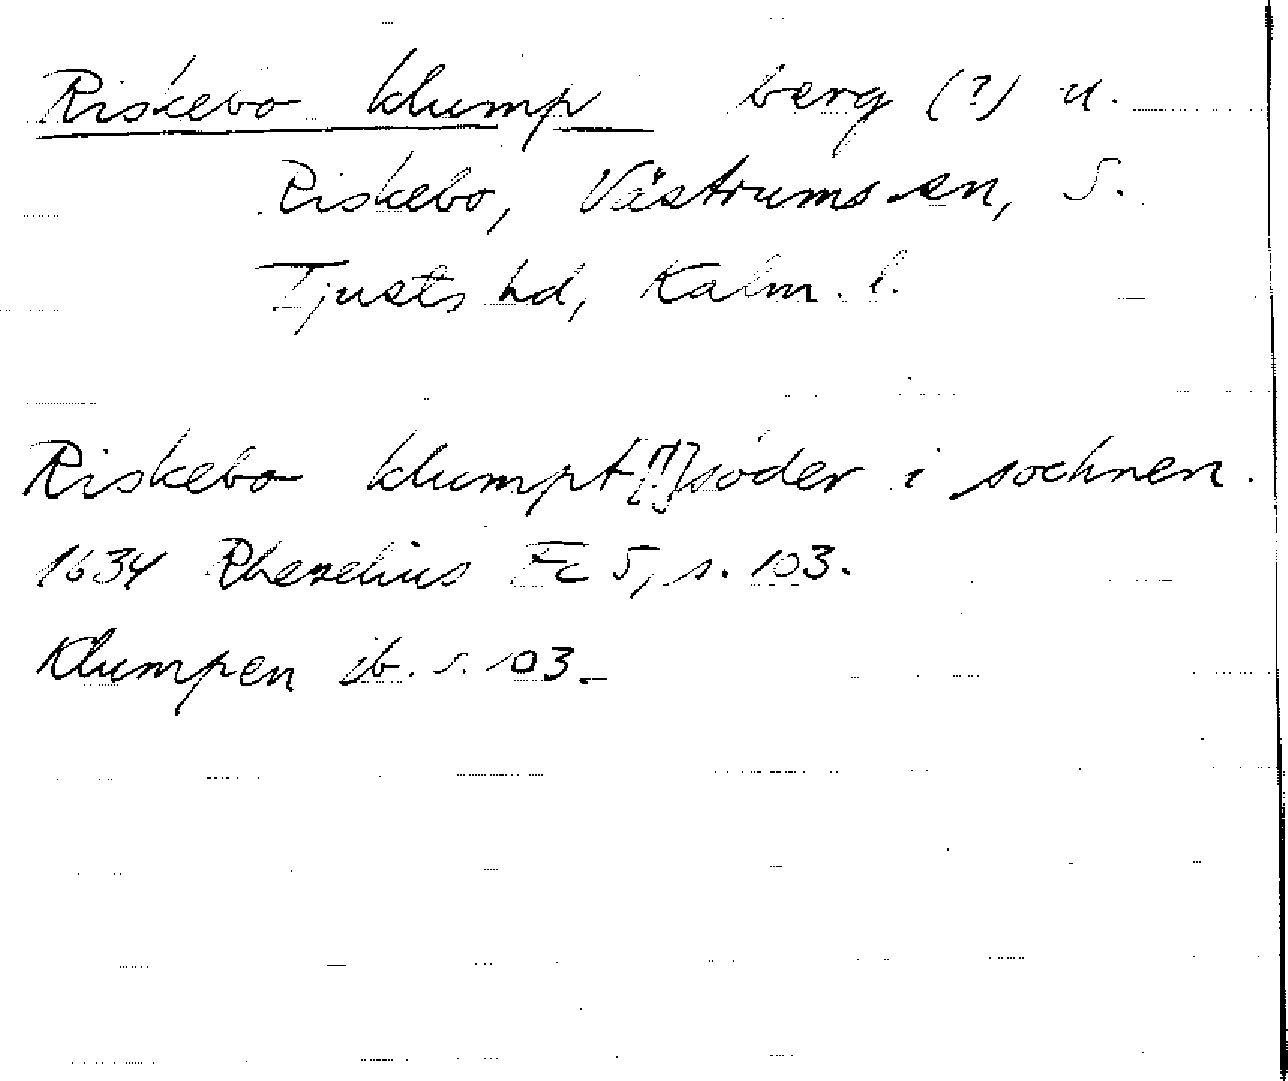 Riskebo klump berg (?) u.
Riskebo, Västrums sn, S.
Tjusts hd, Kalm. l.
Riskebo klumpt [!] söder i sochnen.
1634 Rhezelius Fc 5, s. 103.
Klumpen ib. s. 103.